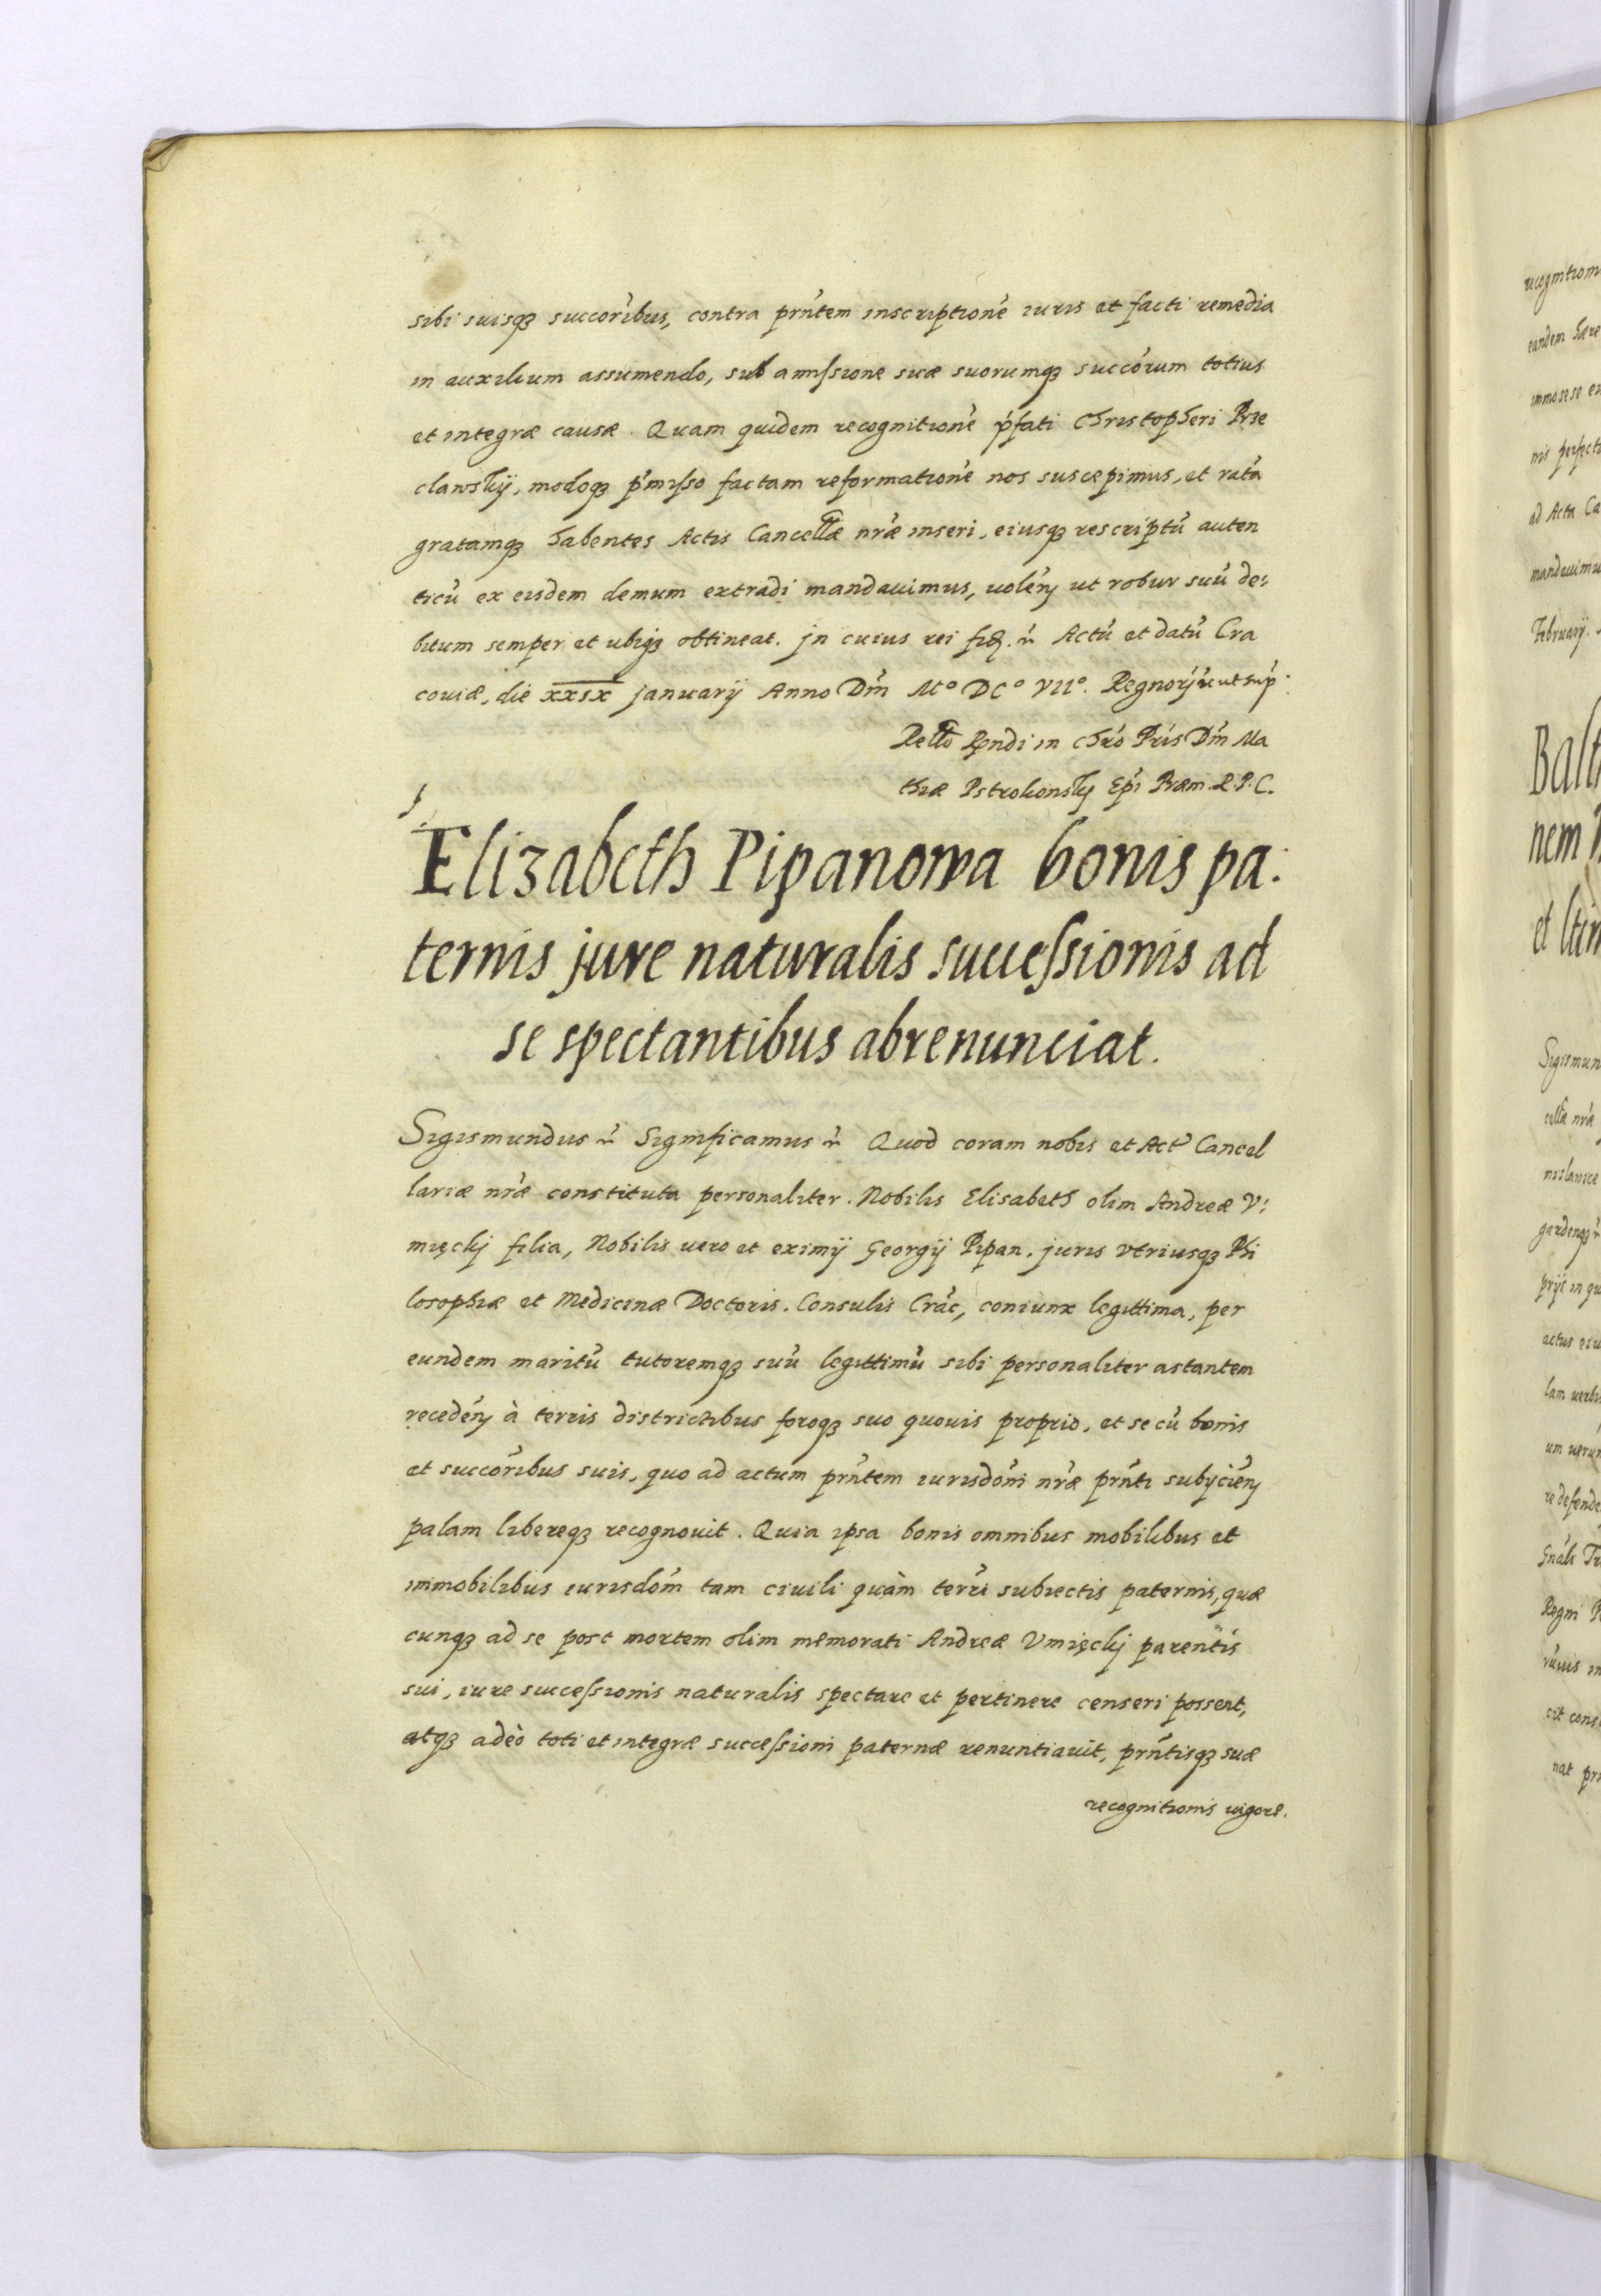 sibi suisqꝫ succor̃ibus, contra prñtem inscriptionẽ iuris et facti remedia
in auxilium assumendo, sub amissione suæ suorumqꝫ succõrum totius
et integræ causæ. Quam quidem recognitionẽ p̃fati Christopheri Prze
clawskÿ, modoqꝫ p̃misso factam reformationẽ nos suscepimus, et ratã
gratamqꝫ habentes Actis Cancellæ nr̃æ inseri, eiusqꝫ rescriptũ auten
ticũ ex eisdem demum extradi mandauimus, uolẽn ut robur suũ de:
bitum semper et ubiqꝫ obtineat. Jn cuius rei fid. Actũ et datũ Cra
couiæ, die xxix januarÿ Anno Dñi Mº DCº VIIº. Regnor̃ ut sup̃.
Rello Rndi in Chrõ Pris Dñi Ma
thiæ Pstrokonsky Ep̃i Præm. R.P.C.
Elizabeth Pipanowa bonis pa:
ternis jure naturalis successionis ad
se spectantibus abrenunciat.
Sigismundus Significamus Quod coram nobis et Act Cancel
lariæ nr̃æ constituta personaliter. Nobilis Elisabeth olim Andreæ V:
mięckj filia, Nobilis uero et eximÿ Georgÿ Pipan. juris vtriusqꝫ Phi
losophiæ et Medicinæ Doctoris. Consulis Crãc, coniunx legittima, per
eundem maritũ tutoremqꝫ suũ legittimũ sibi personaliter astantem
recedẽn à terris districtibus foroqꝫ suo quouis proprio, et se cũ bonis
et succor̃ibus suis, quo ad actum prñtem iurisdõni nr̃æ prñti subÿciẽn
palam libereqꝫ recognouit. Quia ipsa bonis omnibus mobilibus et
immobilibus iurisdõni tam ciuili quàm terr̃i subiectis paternis, quæ
cunqꝫ ad se post mortem olim memorati Andreæ Vmięckj parentis
sui, iure successionis naturalis spectare et pertinere censeri possent,
atqꝫ adeò toti et integræ successioni paternæ renuntiauit, prñtisqꝫ suæ
recognitionis uigore.